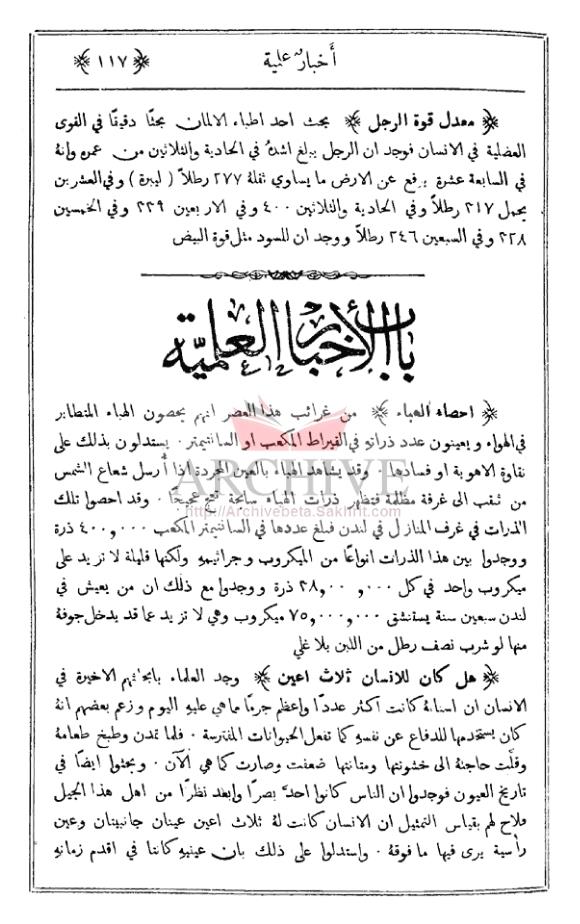 أخبار علمية ﴿ ١١٧ ﴾
﴿ معدل قوة الرجل ﴾ بحث احد اطباء الالمان بحثًا دقيقًا في القوى
العضلية في الانسان فوجد ان الرجل يبلغ اشدَّهُ في الحادية والثلاثين من عمره وانهُ
في السابعة عشرة يرفع عن الارض ما يساوي ثقلهُ ٢٧٧ رطلاً ( ليبرة ) وفي العشرين
يحمل ٢١٧ رطلاً وفي الحادية والثلاثين ٤٠٠ وفي الاربعين ٢٢٩ وفي الخمسين
٢٢٨ وفي السبعين ٢٤٦ رطلاً ووجد ان للسود مثل قوة البيض
باب الأخبار العلمية
﴿ احصاء الهباء ﴾ من غرائب هذا العصر انهم يحصون الهباء المتطاير
في الهواء ويعينون عدد ذراته في القيراط المكعب او السانتيمتر . يستدلون بذلك على
نقاوة الاهوية او فسادها . وقد يشاهد الهباء بالعين المجردة اذا أُرسل شعاع الشمس
من ثقب الى غرفة مظلمة فتظهر ذرات الهباء سابحة تعج عجيجًا . وقد احصوا تلك
الذرات في غرف المنازل في لندن فبلغ عددها في السانتيمتر المكعب ٤٠٠,٠٠٠ ذرة
ووجدوا بين هذا الذرات انواعًا من الميكروب وجراثيمهِ ولكنها قليلة لا تزيد على
ميكروب واحد في كل ٢٨,٠٠ ,٠٠٠ ذرة ووجدوا مع ذلك ان من يعيش في
لندن سبعين سنة يستنشق ٧٥,٠٠٠,٠٠٠ ميكروب وهي لا تزيد عما قد يدخل جوفهُ
منها لو شرب نصف رطل من اللبن بلا غلي
﴿ هل كان للانسان ثلاث اعين ﴾ وجد العلماء بابحاثهم الاخيرة في
الانسان ان اسنانهُ كانت اكثر عددًا واعظم جرمًا ما هي عليهِ اليوم وزعم بعضهم انهُ
كان يستخدمها للدفاع عن نفسهِ كما تفعل الحيوانات المفترسة . فلما تمدن وطبخ طعامهُ
وقلَّت حاجتهُ الى خشونتها ومتانتها ضعفت وصارت كما هي الآن . وبحثوا ايضًا في
تاريخ العيون فوجدوا ان الناس كانوا احدَّ بصرًا وابعد نظرًا من اهل هذا الجيل
فلاح لهم بقياس التمثيل ان الانسان كانت لهُ ثلاث اعين عينان جانبيتان وعين
رأسية يرى فيها ما فوقهُ . واستدلوا على ذلك بان عينيهِ كانتا في اقدم زمانهِ
ARCHIVE
http://Archivebeta.Sakhrit.com